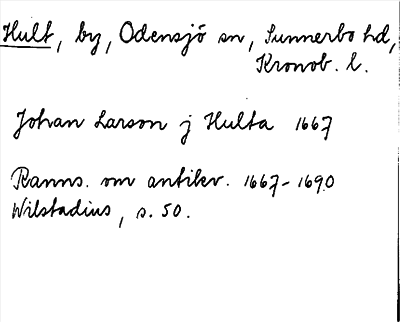 Hult, by, Odensjö sn, Sunnerbo hd,
Kronob. l.
Johan Larson j Hulta 1667
Ranns. om antikv. 1667-1690
Wilstadius, s. 50.